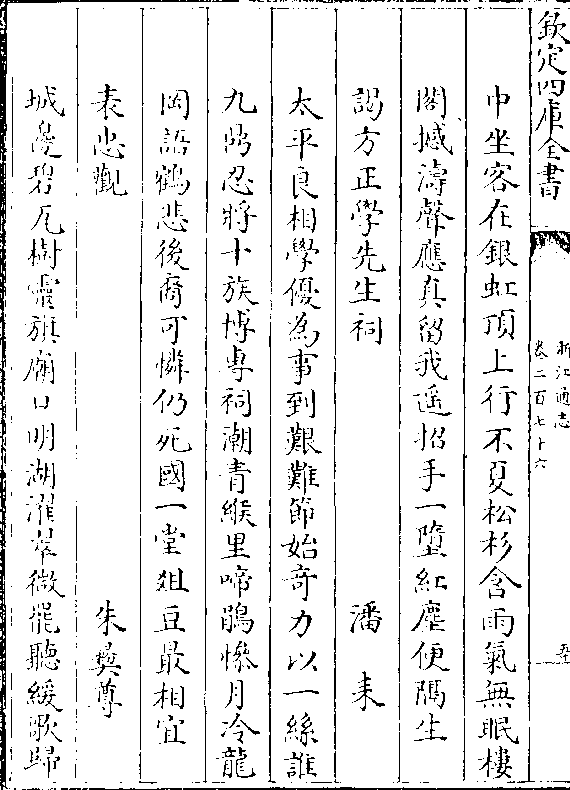 欽定四庫全書
浙江通志
卷二百七十六
中坐客在銀虹頂上行不夏松杉含雨氣無眠樓
閣撼濤聲應真留我遥招手一墮紅塵便隔生
謁方正學先生祠 潘耒
太平良相學優為事到艱難節始奇力以一絲誰
九鼎忍將十族博專祠潮青緱里啼鵑慘月冷龍
岡語鶴悲後裔可憐仍死國一堂俎豆最相宜
表忠觀 朱彝尊
城邊碧瓦樹靈旗廟口明湖濯翠微罷聽緩歌歸